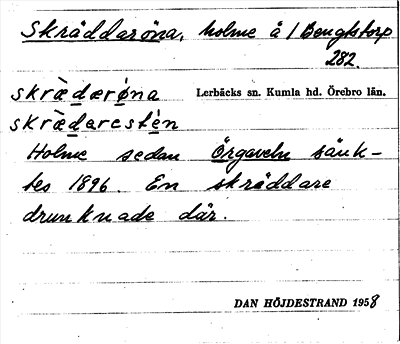 Skräddaröna, holme å 1 Bengtstorp
282.
skrὰ̀dærǿna Lerbäcks sn. Kumla hd. Örebro län.
skræ̀darestèn
Holme sedan Örgaveln sänk-
tes 1896. En skräddare
drunknade där.
DAN HÖJDESTRAND 1958